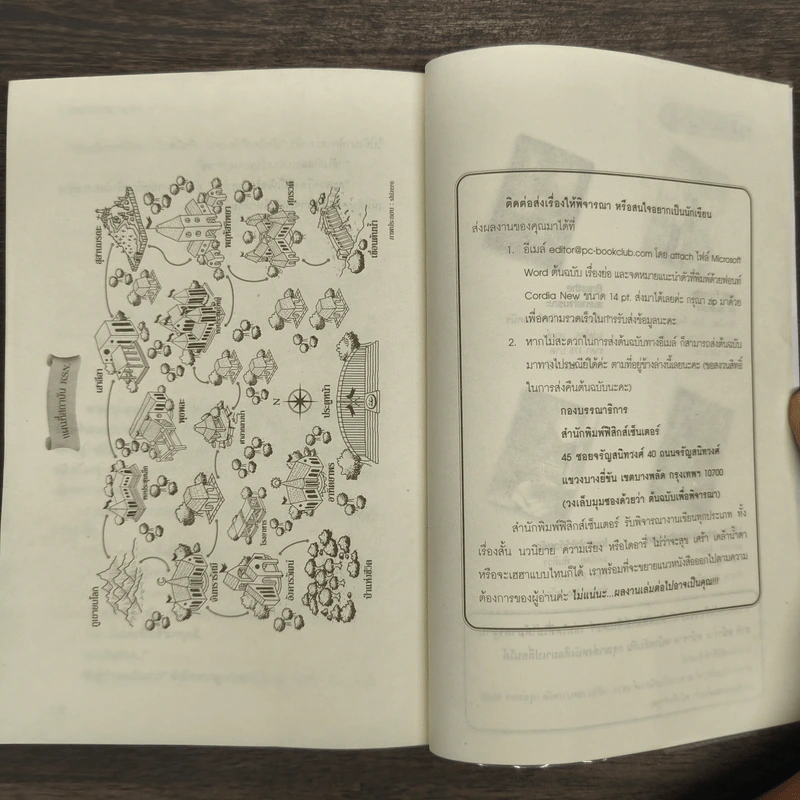 แผนที่สถาบัน
สุสานมรณะ
พฤหัสศักดา
ศุกรวดี
เขื่อนต้นน้ำ
ภาพประกอบ :
เสาร์โต
พุธพนะ
ศาลากลางน้ำ
N
ประตูหน้า
หอประชุมเล็ก
โรงอาหาร
อาทิตยาพร
ภูเขาขนนโลก
จันทรารัศมิ์
อังคารวัณณ์
ป่าแห่งชีวิต
ติดต่อส่งเรื่องให้พิจารณา หรือสนใจอยากเป็นนักเขียน
ส่งผลงานของคุณมาได้ที่
1. อีเมล์ editor@pc-bookclub.com โดย attach ไฟล์ Microsoft
Word ต้นฉบับ เรื่องย่อ และจดหมายแนะนำตัวที่พิมพ์ด้วยฟอนท์
Cordia New ขนาด 14 pt. ส่งมาได้เลยค่ะ กรุณา zip มาด้วย
เพื่อความรวดเร็วในการรับส่งข้อมูลนะคะ
2. หากไม่สะดวกในการส่งต้นฉบับทางอีเมล์ ก็สามารถส่งต้นฉบับ
มาทางไปรษณีย์ได้ค่ะ ตามที่อยู่ข้างล่างนี้เลยนะคะ (ขอสงวนสิทธิ์
ในการส่งคืนต้นฉบับนะคะ)
กองบรรณาธิการ
สำนักพิมพ์ฟิสิกส์เซ็นเตอร์
45 ซอยจรัญสนิทวงศ์ 40 ถนนจรัญสนิทวงศ์
แขวงบางยี่ขัน เขตบางพลัด กรุงเทพฯ 10700
(วงเล็บมุมซองด้วยว่า ต้นฉบับเพื่อพิจารณา)
สำนักพิมพ์ฟิสิกส์เซ็นเตอร์ รับพิจารณางานเขียนทุกประเภท ทั้ง
เรื่องสั้น นวนิยาย ความเรียง หรือไดอารี่ ไม่ว่าจะสุข เศร้า เคล้าน้ำตา
หรือจะเฮฮาแบบไหนก็ได้ เราพร้อมที่จะขยายแนวหนังสือออกไปตามความ
ต้องการของผู้อ่านค่ะ ไม่แน่นะ...ผลงานเล่มต่อไปอาจเป็นคุณ!!!